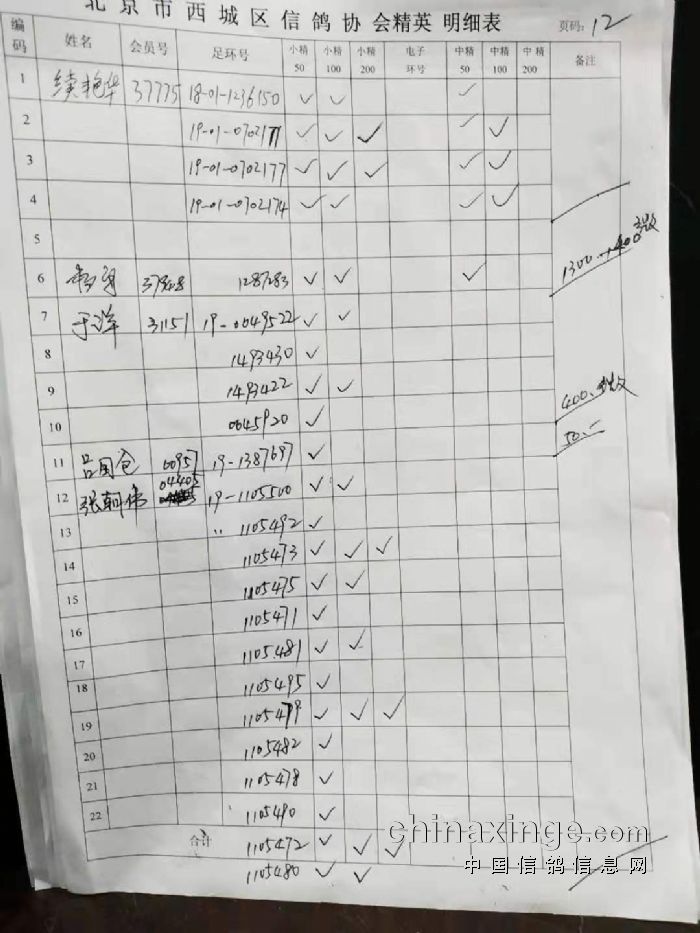 北京市西城区信鸽协会精英 明细表 页码: 12
编码 姓名 会员号 足环号 小精50 小精100 小精200 电子环号 中精50 中精100 中精200 备注
1 37775 18-01-1236150 ✓ ✓ ✓
2 19-01-0702171 ✓ ✓ ✓ ✓ ✓
3 19-01-0702177 ✓ ✓ ✓ ✓ ✓
4 19-01-0702174 ✓ ✓ ✓ ✓
5
1300
6 1287283 ✓ ✓ ✓
7 于洋 31151 19-0649522 ✓ ✓
8 1493430 ✓
9 1493422 ✓ ✓
400
10 0645920 ✓
50
11 吕国仓 00957 19-1387697 ✓
12 张朝伟 04405 19-1105500 ✓ ✓
13 " 1105492 ✓
14 1105473 ✓ ✓ ✓
15 1105475 ✓ ✓
16 1105471 ✓
17 1105481 ✓ ✓
18 1105495 ✓
19 1105479 ✓ ✓ ✓
20 1105482 ✓
21 1105478 ✓
22 1105490 ✓
合计 1105472 ✓ ✓ ✓
1105480 ✓ ✓
chinaxinge.com
中国信鸽信息网